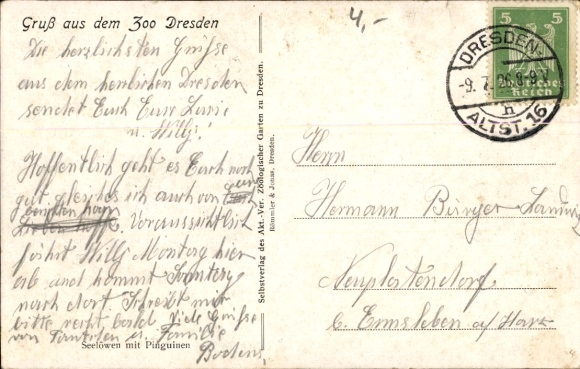 Gruß aus dem Zoo Dresden
4,-
Die herzlichsten Grüße
aus dem herrlichen Dresden
sendet Euch Eure
u. Willy.
Hoffentlich geht es Euch noch
gut gleiches ich auch von
Voraussichtlich
fährt Willy Montag hier
ab und kommt Sonntag
nach dort Schreibt mir
bitte recht bald Viele Grüße
von u. Familie
Bodens
Seelöwen mit Pinguinen
Selbstverlag des Akt.-Ver. Zoologischer Garten zu Dresden.
Römmler & Jonas, Dresden.
5 5
Deutsches
Reich
DRESDEN-
-9. 7. 26. 8-9 V
h
ALTST. 16
Herrn
Hermann Bürger
Neuplatendorf
b. Ermsleben a/Harz